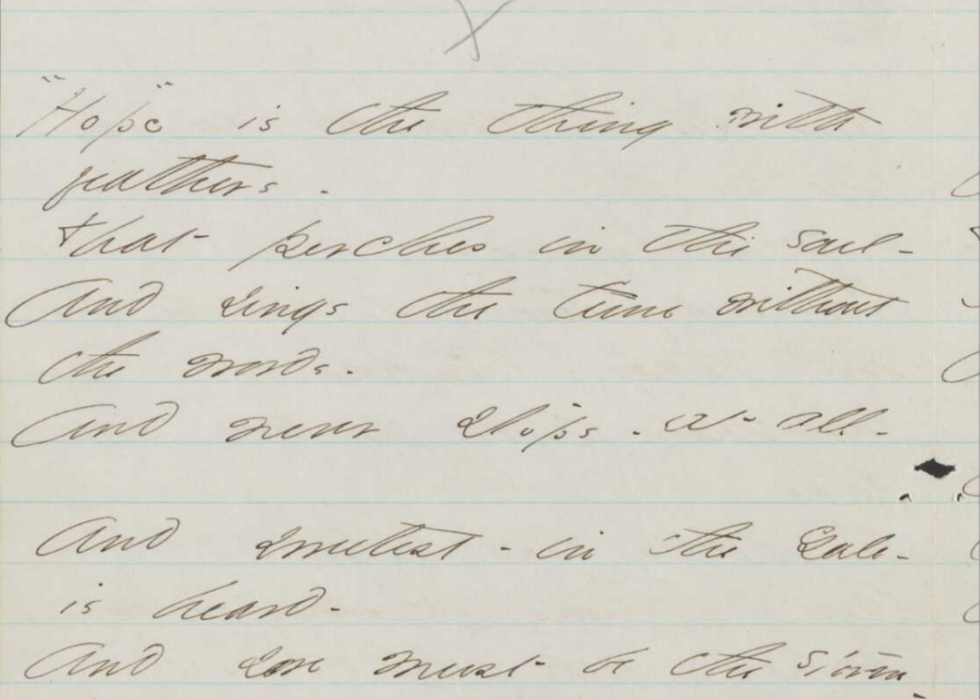 "Hope" is the thing with
feathers -
That perches in the soul -
And sings the tune without
the words -
And never stops - at all -
And sweetest - in the Gale -
is heard -
And sore must be the storm -